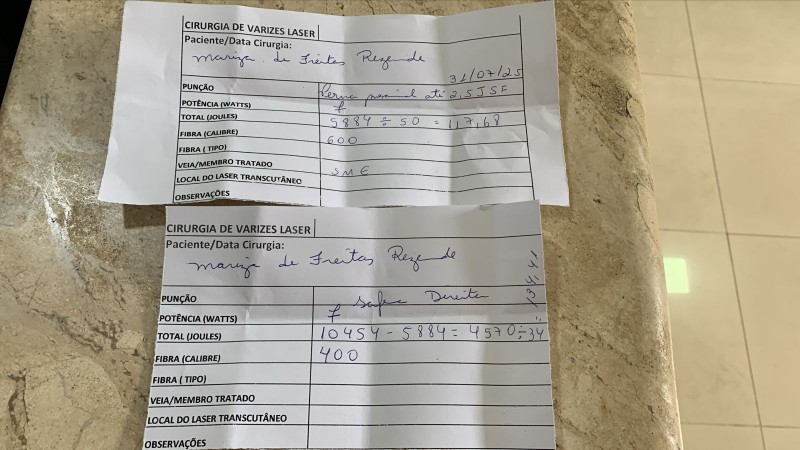 CIRURGIA DE VARIZES LASER
Paciente/Data Cirurgia:
Mariza de Freitas Rezende
31/07/25
PUNÇÃO até 2,5 JSF
POTÊNCIA (WATTS) 7
TOTAL (JOULES) 5884 ÷ 50 = 117,68
FIBRA (CALIBRE) 600
FIBRA ( TIPO)
VEIA/MEMBRO TRATADO
LOCAL DO LASER TRANSCUTÂNEO SME
OBSERVAÇÕES
CIRURGIA DE VARIZES LASER
Paciente/Data Cirurgia:
Mariza de Freitas Rezende
PUNÇÃO Safena Direita
POTÊNCIA (WATTS) 7
TOTAL (JOULES) 10454 - 5884 = 4570 ÷ 34
= 134,41
FIBRA (CALIBRE) 400
FIBRA ( TIPO)
VEIA/MEMBRO TRATADO
LOCAL DO LASER TRANSCUTÂNEO
OBSERVAÇÕES